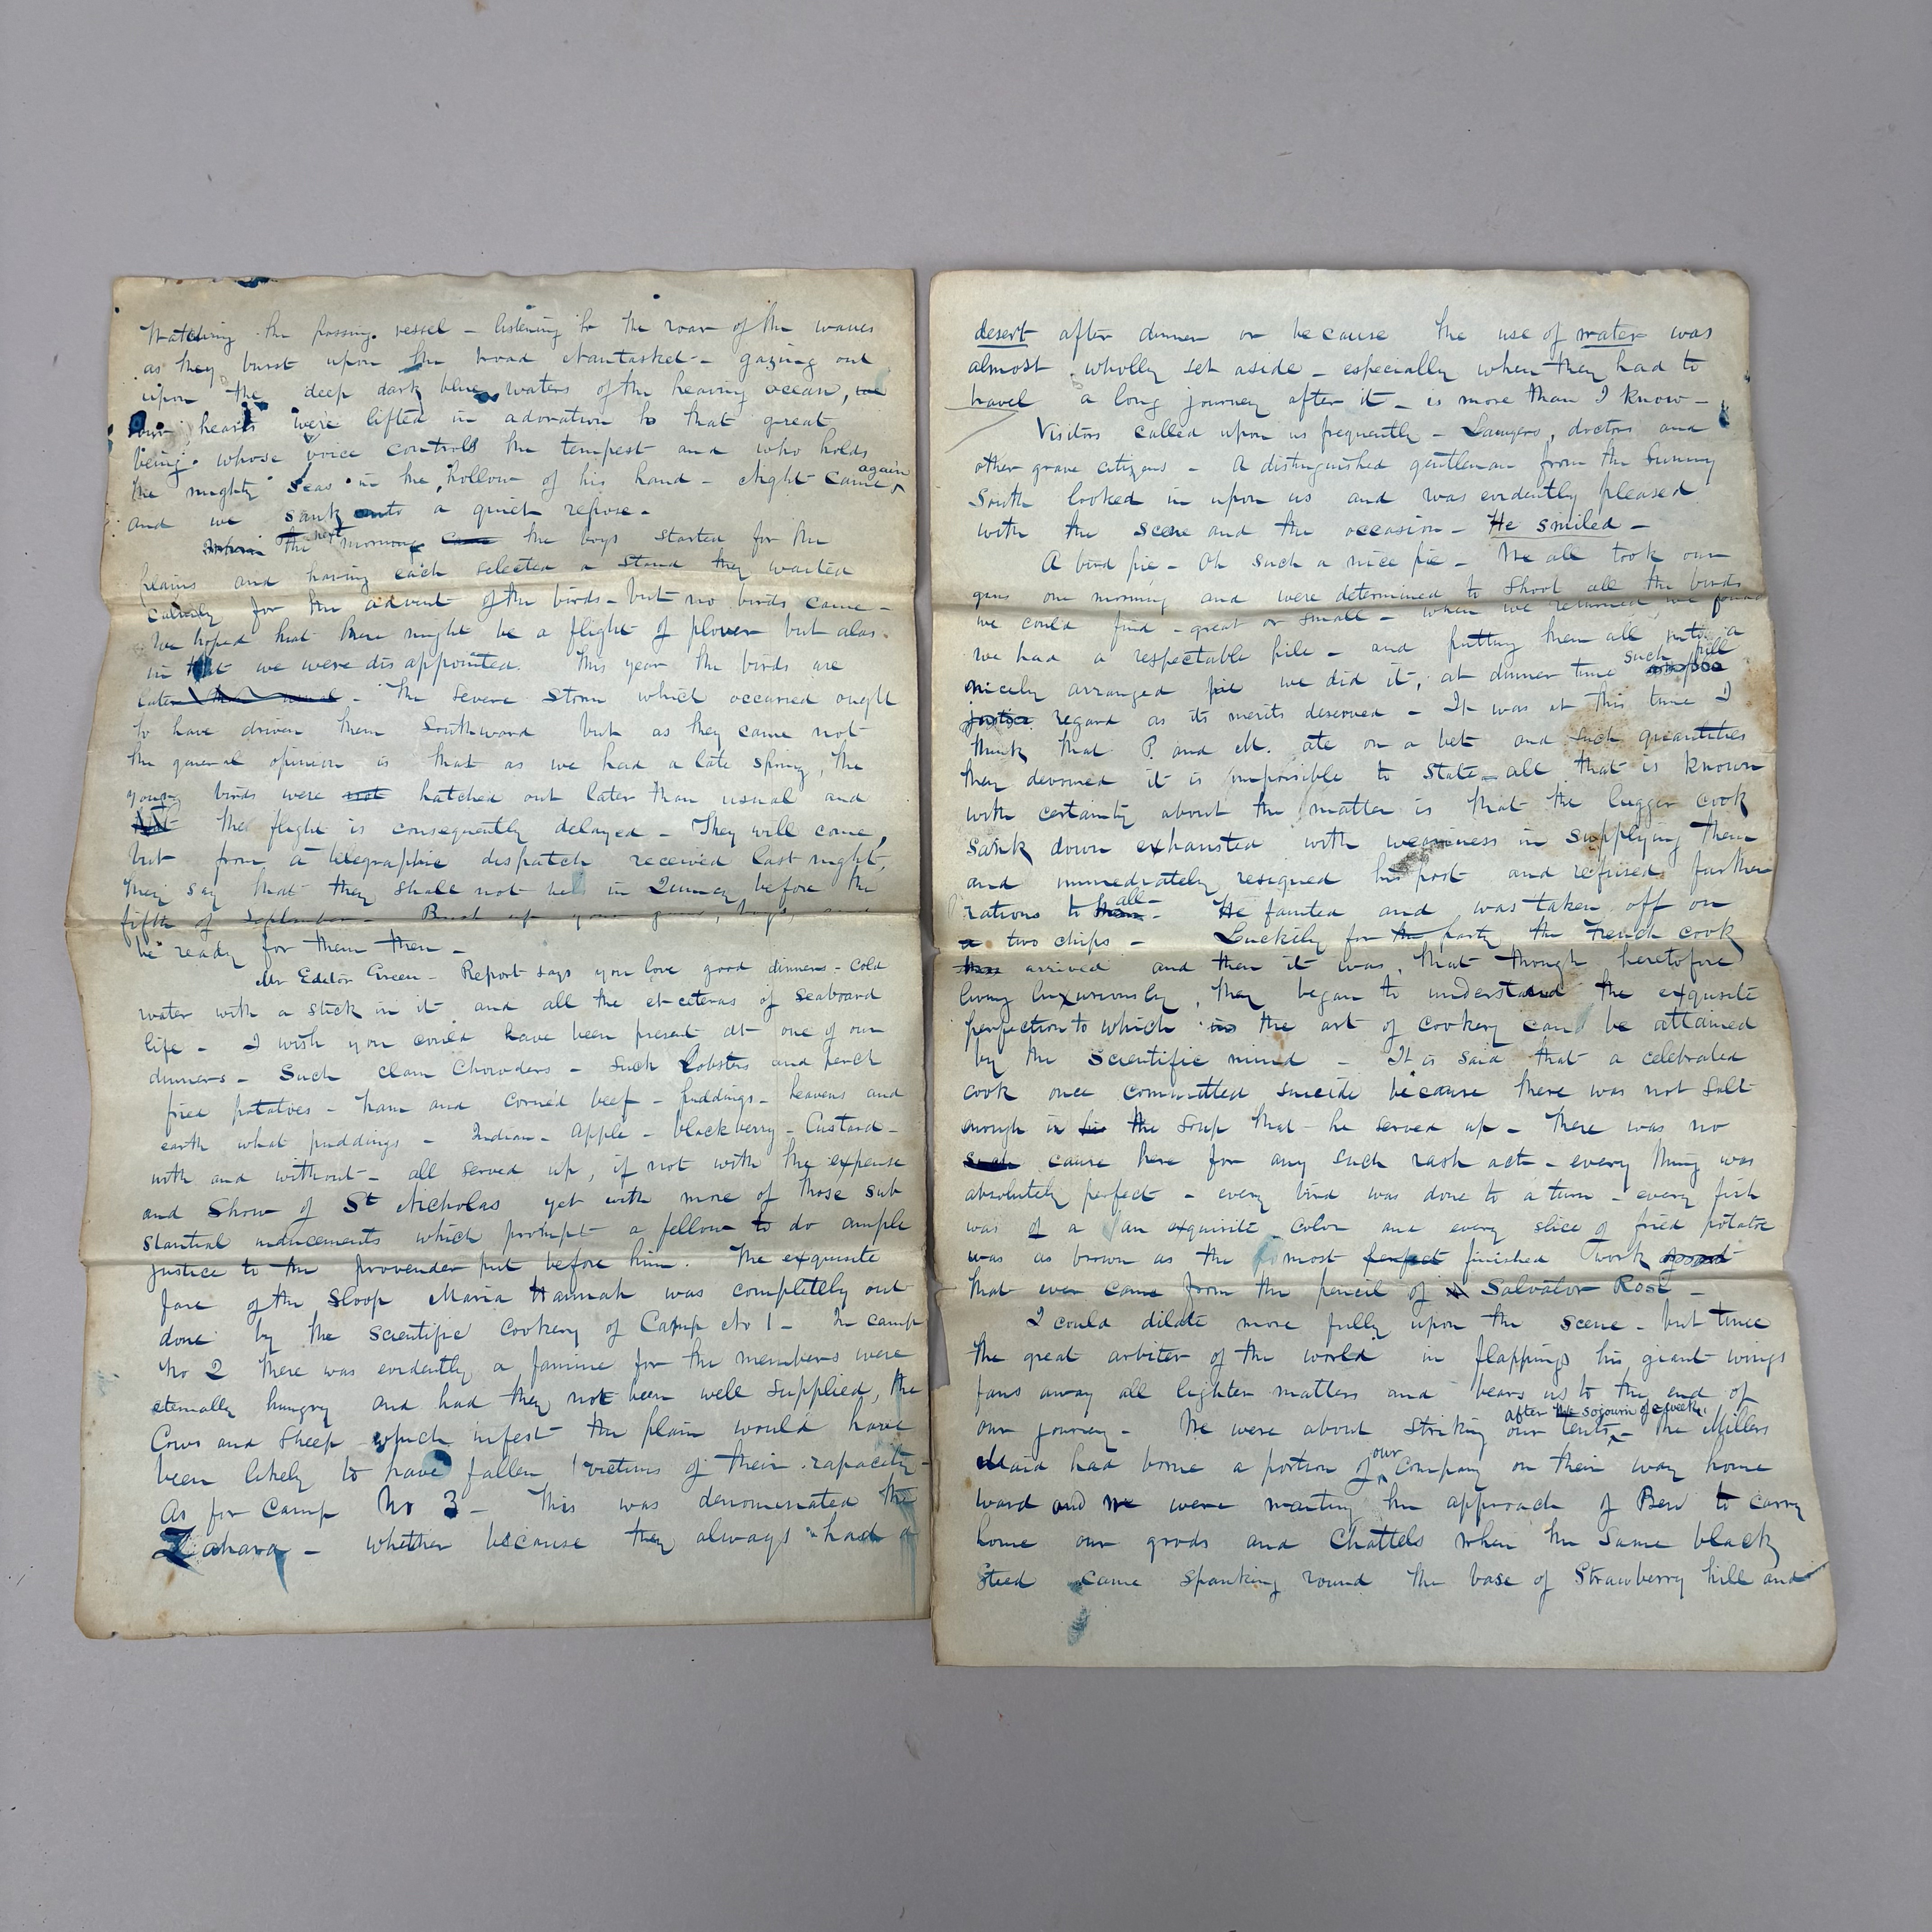 Watching the passing vessel - listening to the roar of the waves
as they burst upon the broad Nantasket - gazing out
upon the deep dark blue waters of the heaving ocean, we
our hearts were lifted in adoration to that great
being whose voice controls the tempest and who holds
the mighty seas in the hollow of his hand - Night came again
and we sank into a quiet repose -
the next morning came the boys started for the
plains and having each selected a stand they waited
calmly for the advent of the birds - but no birds came -
We hoped that there might be a flight of plover but alas
in that we were disappointed. This year the birds are
later than usual - The severe storm which occurred ought
to have driven them Southward but as they came not
the general opinion is that as we had a late Spring, the
young birds were not hatched out later than usual and
the flight is consequently delayed - They will come,
but from a telegraphic dispatch received last night,
they say that they shall not be in Quincy before the
fifth of September - Brush up your guns, boys, and
be ready for them then -
Mr Editor Green - Report says you love good dinners - cold
water with a stick in it and all the et-ceteras of seaboard
life - I wish you could have been present at one of our
dinners - Such clam Chowders - such Lobsters and perch
fried potatoes - ham and corned beef - puddings - heavens and
earth what puddings - Indian - Apple - blackberry - Custard -
with and without - all served up, if not with the expense
and Show of St Nicholas yet with more of those sub
stantial inducements which prompt a fellow to do ample
justice to the provender put before him. The exquisite
fare of the Sloop Maria Hannah was completely out
done by the scientific Cookery of Camp No 1 - In camp
No 2 there was evidently a famine for the members were
eternally hungry and had they not been well supplied, the
Cows and Sheep which infest the plain would have
been likely to have fallen victims of their rapacity -
As for Camp No 3 - This was denominated the
Zahara - whether because they always had a
desert after dinner or because the use of water was
almost wholly set aside - especially when they had to
travel a long journey after it - is more than I know -
Visitors called upon us frequently - Lawyers, doctors and
other grave citizens - A distinguished gentleman from the Sunny
South looked in upon us and was evidently pleased
with the scene and the occasion - He smiled -
A bird pie - Oh such a nice pie - We all took our
guns one morning and were determined to shoot all the birds
we could find - great or small - when we returned, we found
we had a respectable pile - and putting them all into a
nicely arranged pie we did it, at dinner time such full
justice regard as its merits deserved - It was at this time I
think that P. and M. ate on a bet and such quantities
they devoured it is impossible to State - all that is known
with certainty about the matter is that the lugger cook
sank down exhausted with weariness in supplying them
and immediately resigned his post and refused further
rations to them all - He fainted and was taken off on
a two chips - Luckily for the party the French cook
then arrived and then it was, that though heretofore
living luxuriously, they began to understand the exquisite
perfection to which in the art of cookery can be attained
by the scientific mind - It is said that a celebrated
cook once committed suicide because there was not salt
enough in his the soup that he served up - There was no
such cause here for any such rash act - every thing was
absolutely perfect - every bird was done to a turn - every fish
was of a an exquisite color and every slice of fried potatoe
was as brown as the most perfect finished work
that ever came from the pencil of Salvator Rosa -
I could dilate more fully upon the scene - but time
the great arbiter of the world in flapping his giant wings
fans away all lighter matters and bears us to the end of
our journey - We were about striking our tents after the sojourn of a week, - The Millers
Maid had borne a portion of our Company on their way home
ward and we were waiting the approach of Ben to carry
home our goods and Chattels when the same black
steed came spanking round the base of Strawberry hill and